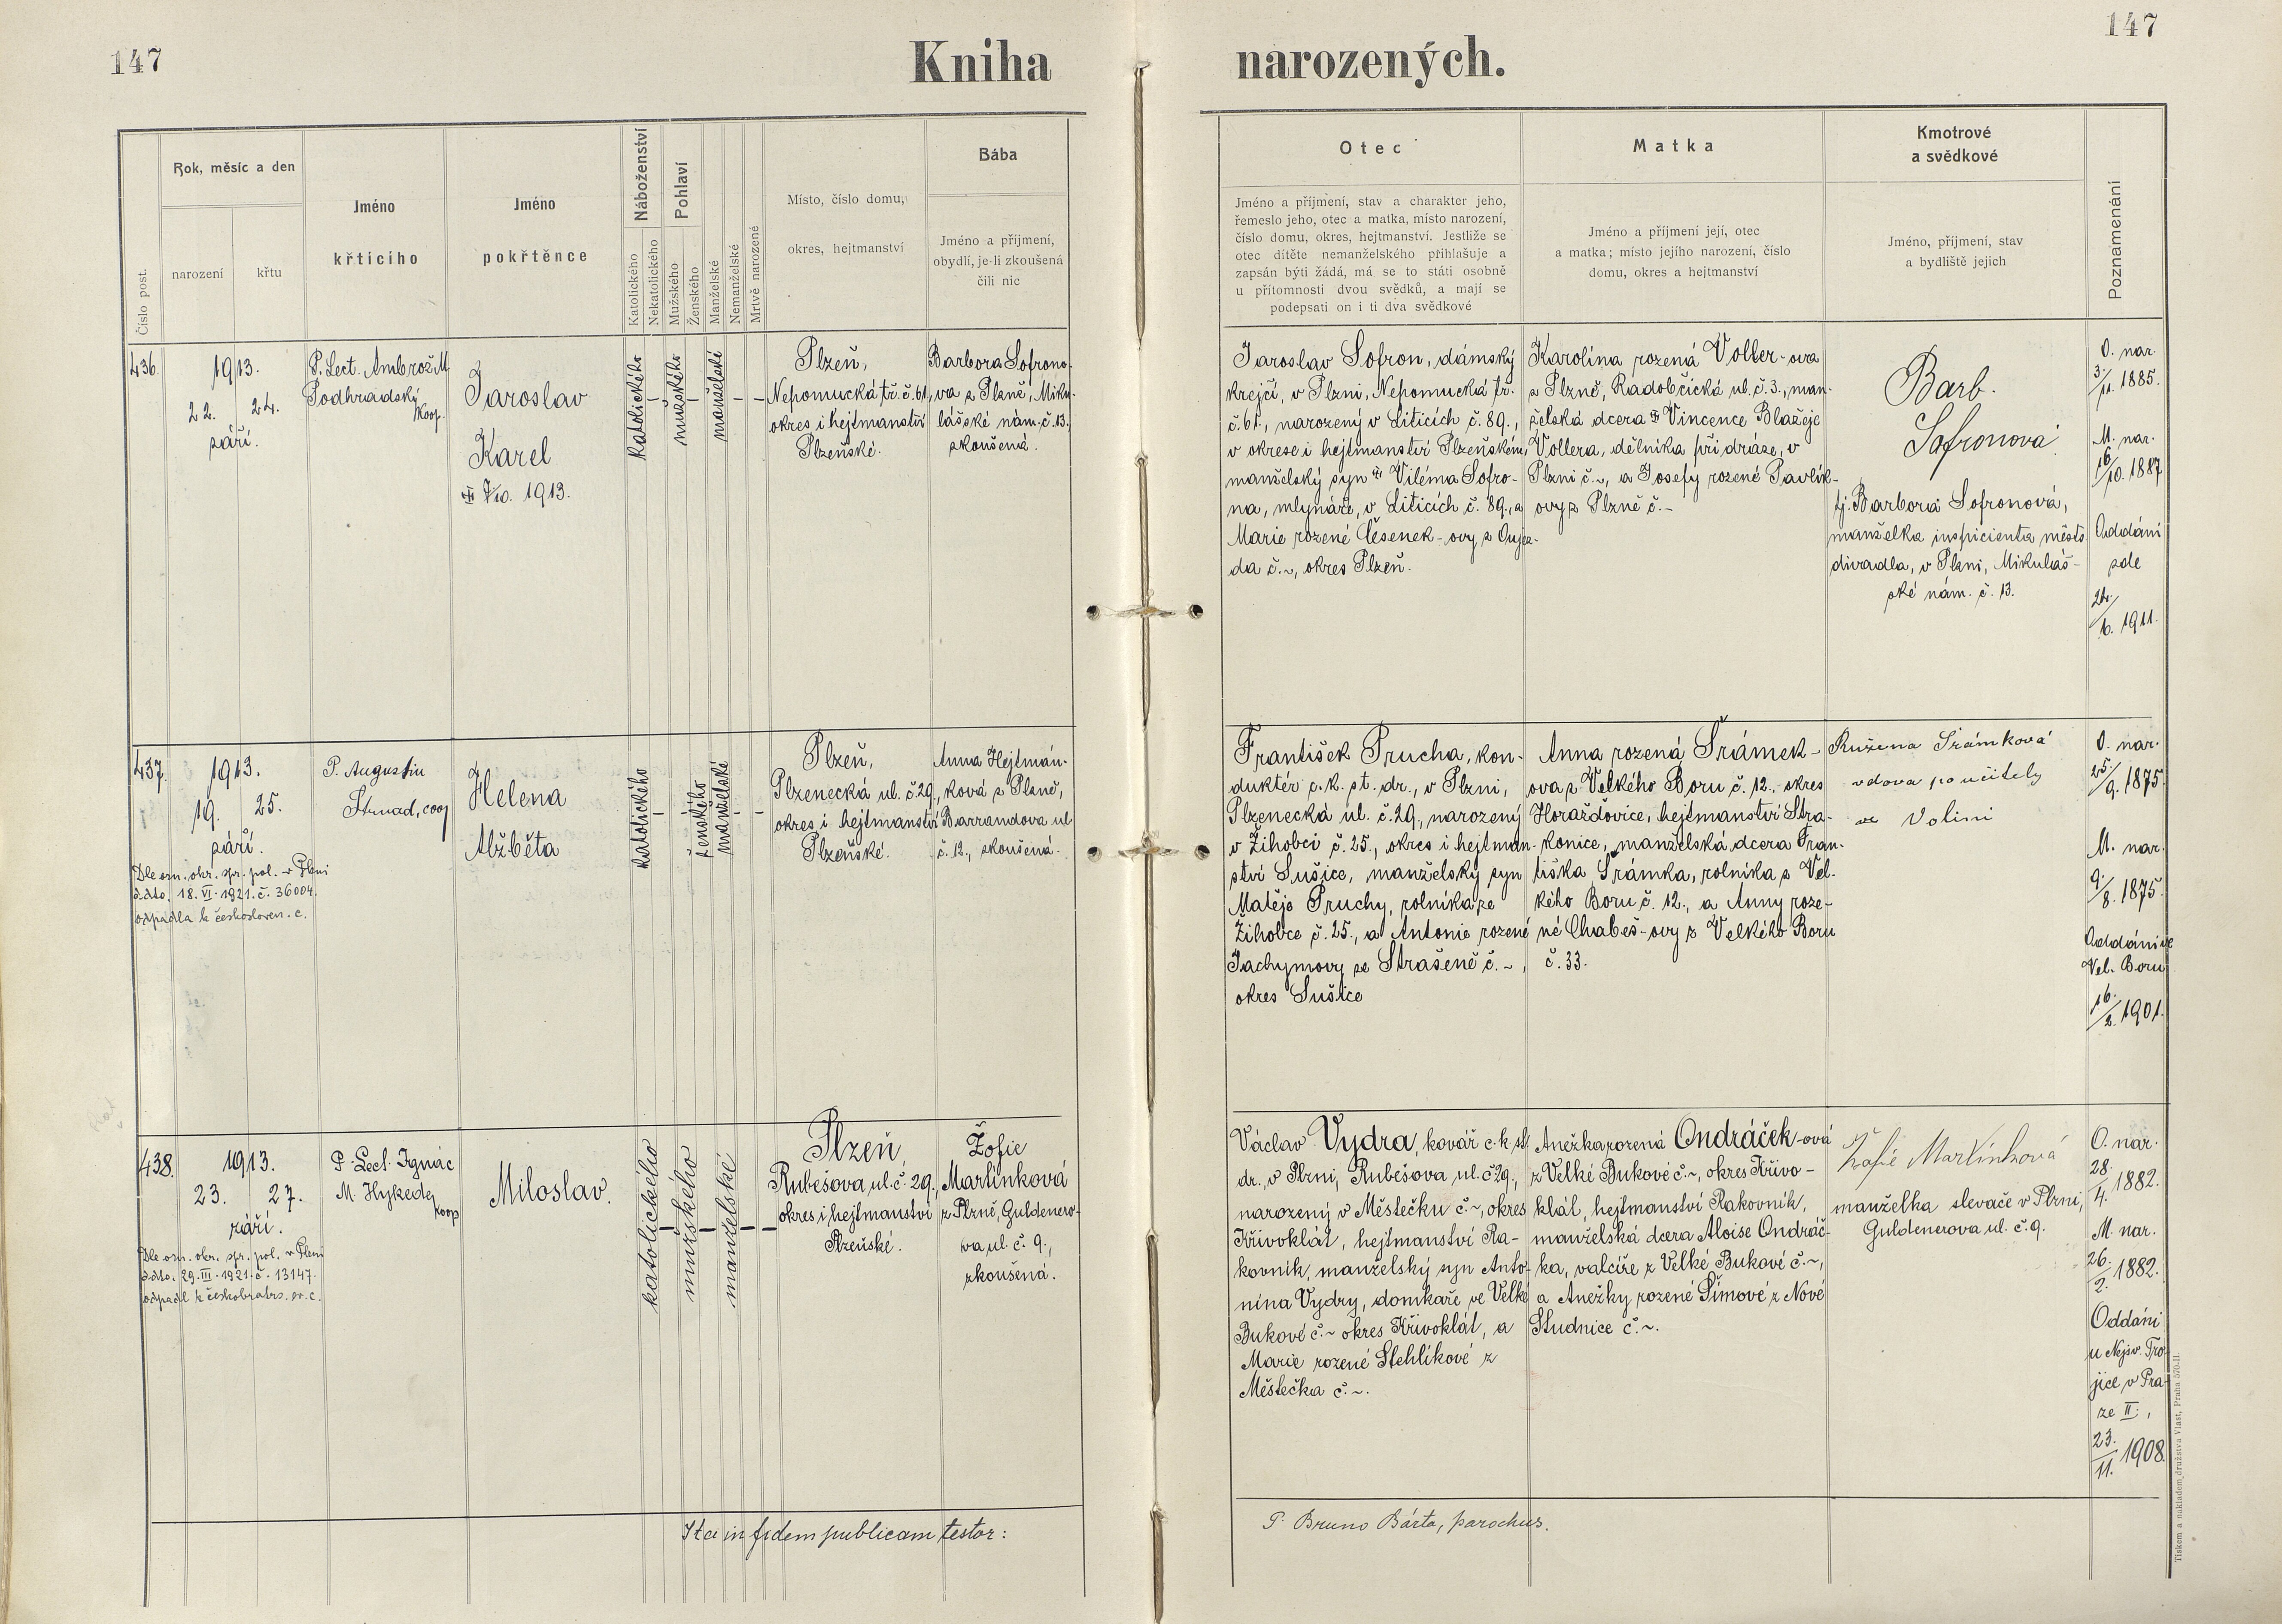 147
Kniha
narozených.
147
Číslo post.
Rok, měsíc a den
narození
křtu
Jméno
křticího
Jméno
pokřtěnce
Náboženství
Katolického
Nekatolického
Pohlaví
Mužského
Ženského
Manželské
Nemanželské
Mrtvě narozené
Místo, číslo domu,
okres, hejtmanství
Bába
Jméno a příjmení,
obydlí, je-li zkoušená
čili nic
Otec
Jméno a příjmení, stav a charakter jeho,
řemeslo jeho, otec a matka, místo narození,
číslo domu, okres, hejtmanství. Jestliže se
otec dítěte nemanželského přihlašuje a
zapsán býti žádá, má se to státi osobně
u přítomnosti dvou svědků, a mají se
podepsati on i ti dva svědkové
Matka
Jméno a příjmení její, otec
a matka; místo jejího narození, číslo
domu, okres a hejtmanství
Kmotrové
a svědkové
Jméno, příjmení, stav
a bydliště jejich
Poznamenání
436.
1913.
22. 24.
září.
P. Lect. Ambrož M
Podhradský
koop.
Jaroslav
Karel
7/10. 1913.
katolického
–
mužského
–
manželské
–
–
Plzeň,
Nepomucká tř. č. 61,
okres i hejtmanství
Plzeňské.
Barbora Sofrono-
va z Plzně, Miku-
lášské nám. č. 13.
zkoušená.
Jaroslav Sofron, dámský
krejčí, v Plzni, Nepomucká tř.
č. 61., narozený v Liticích č. 89.,
v okrese i hejtmanství Plzeňském,
manželský syn Viléma Sofro-
na, mlynáře, v Liticích č. 89., a
Marie rozené Česenek-ovy z Ouje-
da č. ~, okres Plzeň.
Karolína rozená Voller-ova
z Plzně, Radobčická ul. č. 3., man-
želská dcera Vincence Blažeje
Vollera, dělníka při dráze, v
Plzni č. ~, a Josefy rozené Pavlík-
ovy z Plzně č. -
Barb.
Sofronová
tj. Barbora Sofronová,
manželka inspicienta měšts.
divadla, v Plzni, Mikuláš-
ské nám. č. 13.
O. nar.
3/11. 1885.
M. nar.
16/10. 1887
Oddáni
zde
24/6. 1911.
437.
1913.
19. 25.
září.
Dle ozn. okr. spr. pol. v Plzni
ddto. 18. VI. 1921. č. 36004.
odpadla k českosloven. c.
P. Augustin
Strnad, coop
Helena
Alžběta
katolického
–
–
ženského
manželské
–
–
Plzeň,
Plzenecká ul. č. 29.,
okres i hejtmanství
Plzeňské.
Anna Hejtmán-
ková z Plzně,
Barrandova ul
č. 12., zkoušená.
František Prucha, kon-
duktér c. k. st. dr., v Plzni,
Plzenecká ul. č. 29., narozený
v Žihobci č. 25., okres i hejtman-
ství Sušice, manželský syn
Matěje Pruchy, rolníka ze
Žihobce č. 25., a Antonie rozené
Jachymovy ze Strašeně č. ~,
okres Sušice
Anna rozená Šrámek-
ova z Velkého Boru č. 12., okres
Horažďovice, hejtmanství Stra-
konice, manželská dcera Fran-
tiška Šrámka, rolníka z Vel-
kého Boru č. 12., a Anny roze-
né Chabeš-ovy z Velkého Boru
č. 33.
Ružena Šrámková
vdova po učitely
ve Volini
O. nar.
25/9. 1875.
M. nar.
9./8. 1875.
Oddáni ve
Vel. Boru
16./2. 1901.
438.
1913.
23. 27.
září.
Dle ozn. okr. spr. pol. v Plzni
ddto. 29. III. 1921. č. 13147.
odpadl k českobratrs. ev. c.
P. Lect. Ignác
M. Hykede,
koop
Miloslav.
katolického
–
mužského
–
manželské
–
–
Plzeň,
Rubešova ul. č. 29.,
okres i hejtmanství
Plzeňské.
Žofie
Martinková
z Plzně, Guldenero-
va ul. č. 9.,
zkoušená.
Václav Vydra, kovář c. k. st.
dr., v Plzni, Rubešova ul. č 29.,
narozený v Městečku č. ~, okres
Křivoklát, hejtmanství Ra-
kovník, manželský syn Anto-
nína Vydry, domkaře ve Velké
Bukové č. ~ okres Křivoklát, a
Marie rozené Stehlíkové z
Městečka č. ~.
Anežka rozená Ondráček-ová
z Velké Bukové č. ~, okres Křivo-
klát, hejtmanství Rakovník,
manželská dcera Aloise Ondráč-
ka, valcíře z Velké Bukové č. ~,
a Anežky rozené Šímové z Nové
Studnice č. ~.
Žofie Martínková
manželka slevače v Plzni,
Guldenerova ul. č. 9.
O. nar.
28./4. 1882.
M. nar.
26./2. 1882.
Oddáni
u Nejsv. Tro-
jice v Pra-
ze II.,
23./11. 1908.
Ita in fidem publicam testor:
P. Bruno Bárta, parochus.
Tiskem a nákladem družstva Vlast, Praha 570-II.